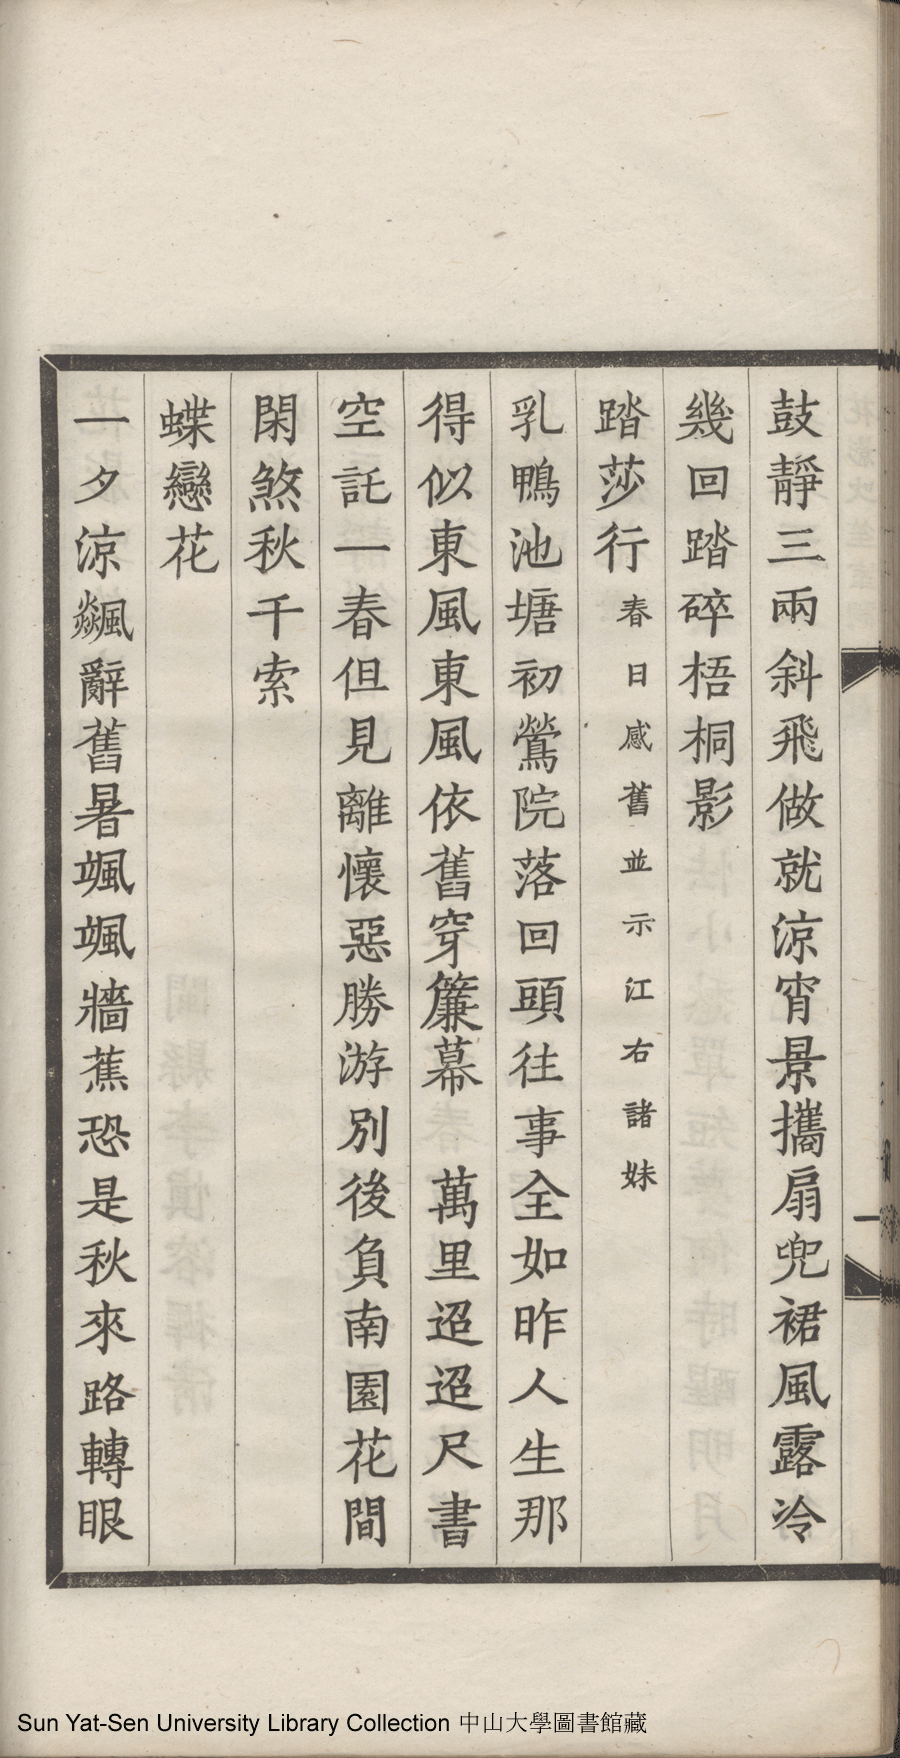 鼓靜三兩斜飛做就涼宵景攜扇兜裙風露冷
幾回踏碎梧桐影
踏莎行 春日感舊並示江右諸妹
乳鴨池塘初鶯院落回頭往事全如昨人生那
得似東風東風依舊穿簾幕 萬里迢迢尺書
空託一春但見離懷惡勝游別後負南園花間
閑煞秋千索
蝶戀花
一夕涼飆辭舊暑颯颯牆蕉恐是秋來路轉眼
一
Sun Yat-Sen University Library Collection 中山大學圖書館藏